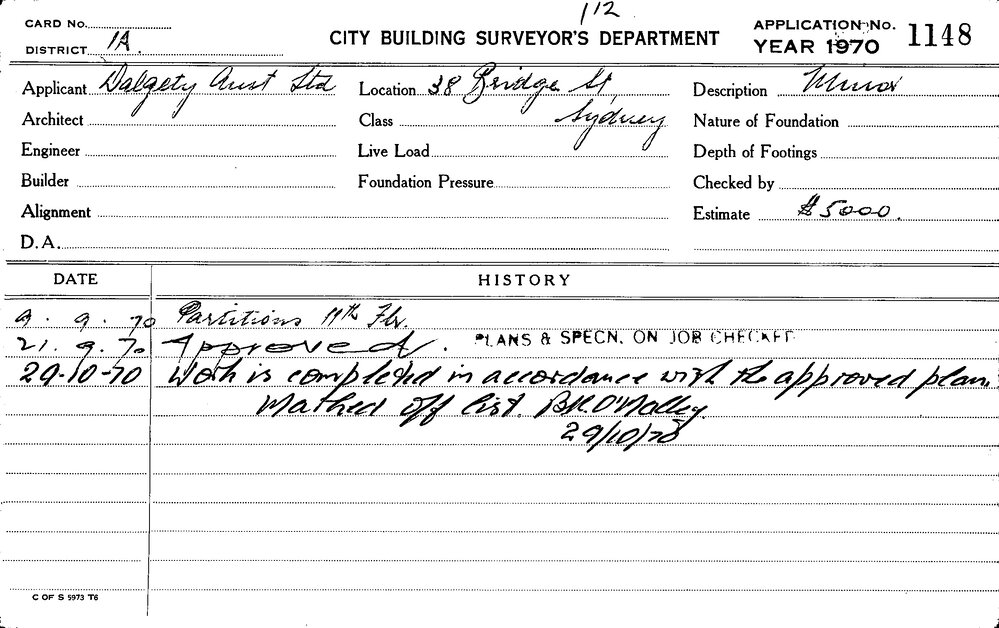 112
CARD No.
DISTRICT 1A.
CITY BUILDING SURVEYOR'S DEPARTMENT
APPLICATION No. 1148
YEAR 1970
Applicant Dalgety Aust Ltd
Location 38 Bridge St,
Sydney
Description Minor
Architect
Class
Nature of Foundation
Engineer
Live Load
Depth of Footings
Builder
Foundation Pressure
Checked by
Alignment
Estimate $5000.
D.A.
DATE HISTORY
9. 9. 70 Partitions 11th Flr.
21. 9. 70 Approved. PLANS & SPECN. ON JOB CHECKED
29-10-70 Work is completed in accordance with the approved plan.
Marked off list. O'Malley.
29/10/70
C OF S 5973 T6